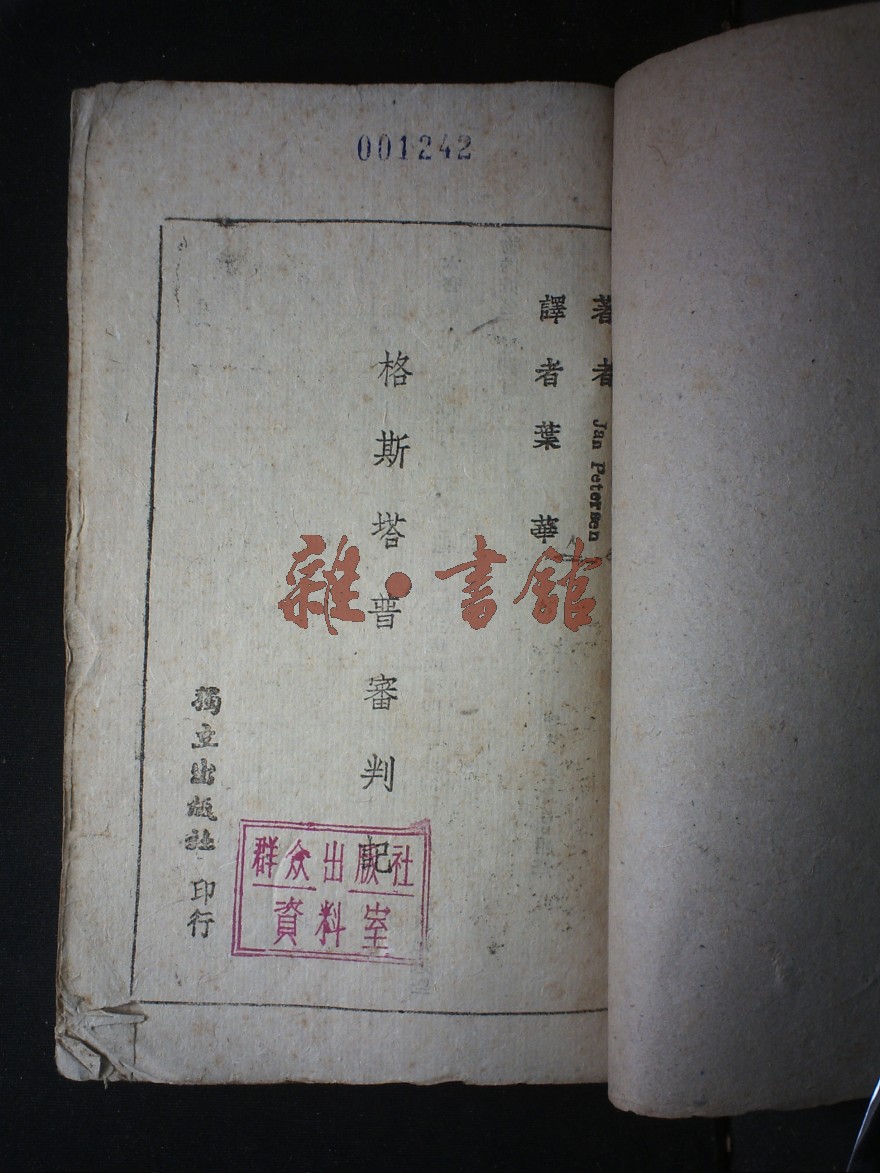 001242
著者 Jan Petersen
譯者葉華
格斯塔普審判記
獨立出版社 印行
群众出版社
資料室
雜·書館